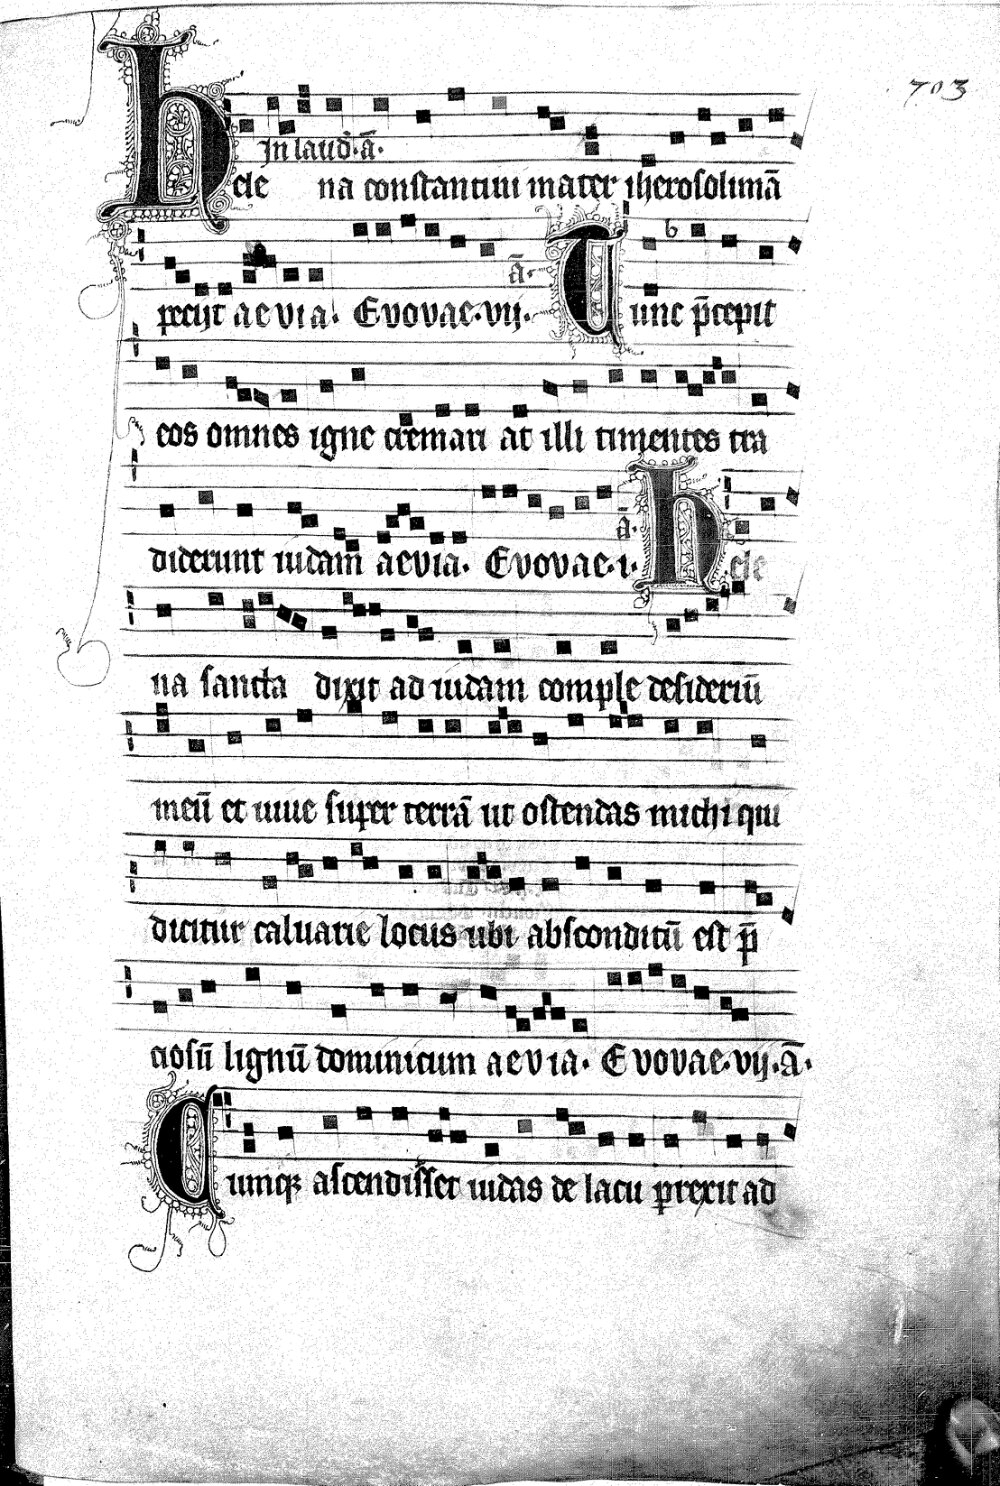 703
In laud̄·ā·
Hele na constantini mater iherosolimā
peciit aevia. Evovae·vij· ā· Tunc p̄cepit
eos omnes igne cremari at illi timentes tra
diderunt iudam aevia. Evovae·i· ā· Hele
na sancta dixit ad iudam comple desideriū
meū et uiue super terrā ut ostendas michi qui
dicitur caluarie locus ubi absconditū est p̄
ciosū lignū dominicum aevia. Evovae·vij·ā·
Cumq; ascendisset iudas de lacu perrexit ad